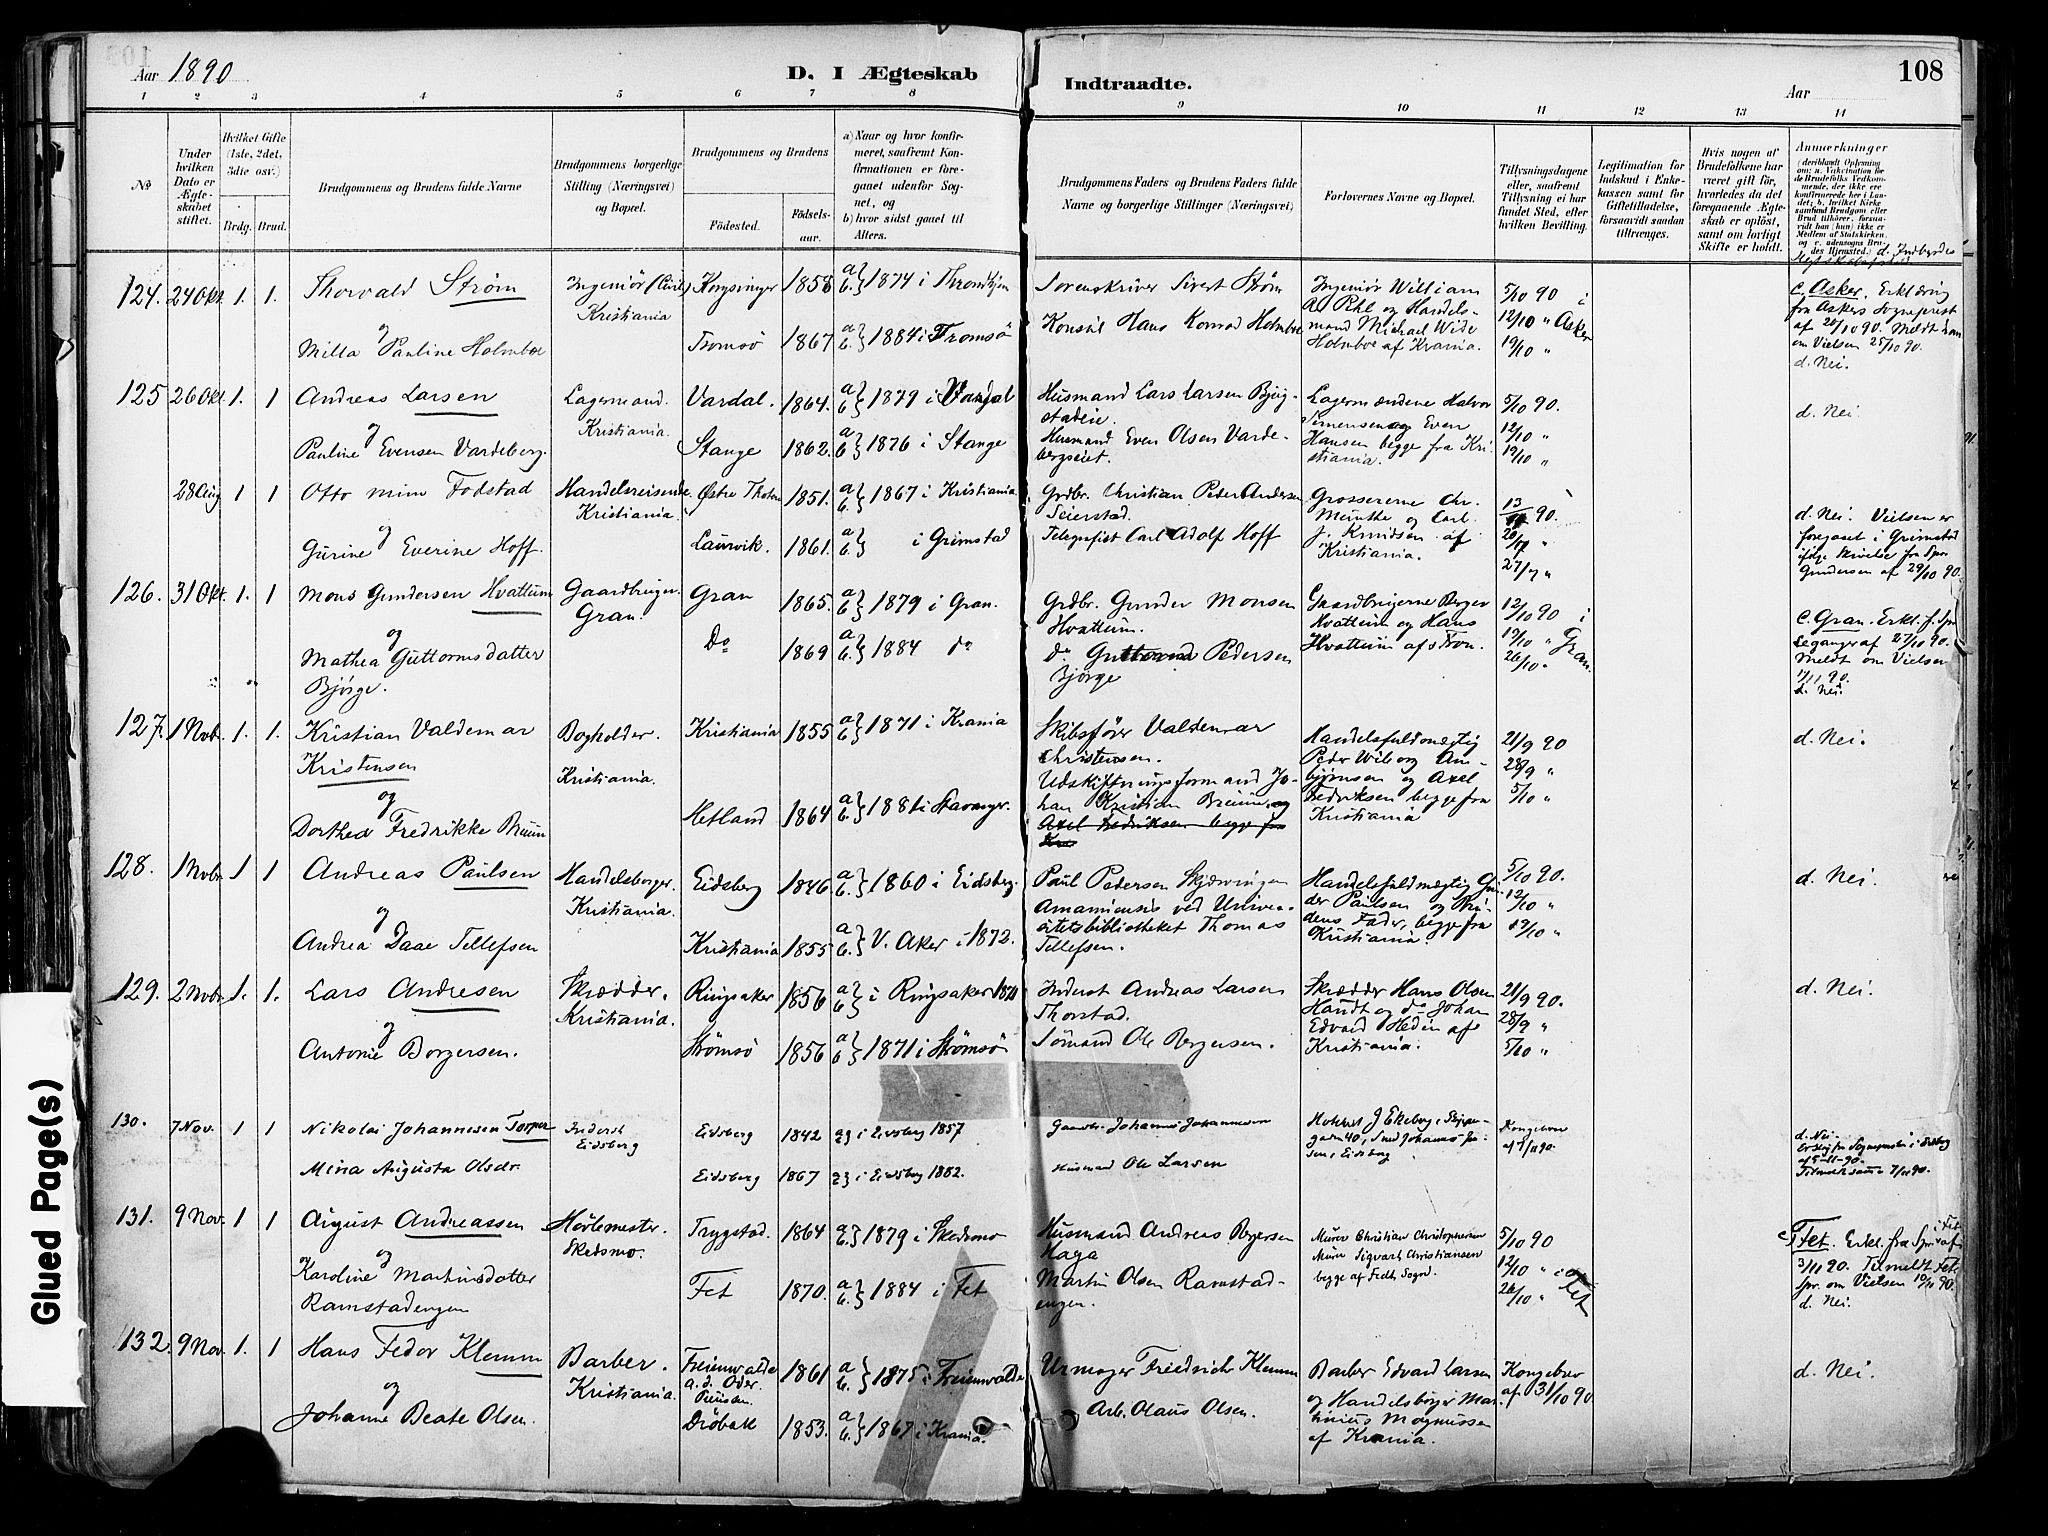 Aar 1890
D. I Ægteskab
Indtraadte.
Aar
108
1 2 3 4 5 6 7 8 9 10 11 12 13 14
No
Under hvilken Dato er Ægteskabet stiftet.
Hvilket Gifte (1ste, 2det, 3die osv.)
Brdg. Brud.
Brudgommens og Brudens fulde Navne
Brudgommens borgerlige Stilling (Næringsvei) og Bopæl.
Brudgommens og Brudens
Fødested.
Fødselsaar.
a) Naar og hvor konfirmeret, saafremt Konfirmationen er foregaaet udenfor Sognet, og
b) hvor sidst gaaet til Alters.
Brudgommens Faders og Brudens Faders fulde Navne og borgerlige Stillinger (Næringsvei)
Forlovernes Navne og Bopæl.
Tillysningsdagene eller, saafremt Tillysning ei har fundet Sted, efter hvilken Bevilling.
Legitimation for Indskud i Enkekassen samt for Giftetilladelse, forsaavidt saadan tiltrænges.
Hvis nogen af Brudefolkene har været gift før, hvorledes da det foregaaende Ægteskab er opløst, samt om lovligt Skifte er holdt.
Anmærkninger
124. 24 Okt. 1. 1.
Thorvald Strøm
og
Milla Pauline Holmboe
Ingeniør (Civil)
Kristiania
Kongsvinger 1858 a b } 1874 i Throndhjem
Tromsø 1867 a b } 1884 i Tromsö
Sorenskriver Sivert Strøm
Konsul Hans Konrad Holmboe
Ingeniør William
Pihl og Handels-
mand Michael Wide
Holmboe af Krania.
5/10 90 i
12/10 " Asker
19/10 "
c. Asker. Erklæring
fra Askers Sognepræst
af 20/10 90. Meldt ham
om Vielsen 25/10 90.
d. Nei.
125 26 Okt. 1. 1
Andreas Larsen
og
Pauline Evensen Vardeberg.
Lagermand.
Kristiania.
Vardal. 1864. a b } 1879 i Vardal
Stange 1862. a b } 1876 i Stange
Husmand Lars Larsen Bjug-
stadeie.
Husmand Even Olsen Varde-
bergseiet.
Lagermændene Halvor
Simensen og Even
Hansen begge fra Kri
stiania.
5/10 90.
12/10 "
19/10 "
d. Nei
28 Aug 1 1
Otto Fodstad
og
Gurine Everine Hoff.
Handelsreisende
Kristiania.
Østre Thoten 1851. a b } 1867 i Kristiania
Laurvik. 1861. a b } i Grimstad
Grdbr. Christian Peder Andersen
Seierstad.
Telegrafist Carl Adolf Hoff
Grossererne Chr.
Munthe og Carl
J. Knudsen af
Kristiania.
90.
27/7 "
d. Nei. Vielsen er
foregaaet i Grimstad
ifølge Skrivelse fra Spr.
Gundersen af 29/10 90.
126. 31 Okt. 1. 1
Mons Gundersen Hvattum
og
Mathea Guttormsdatter
Bjørge.
Gaardbruger
Gran.
Gran 1865. a b } 1879 i Gran.
Do 1869 a b } 1884 do
Grdbr. Gunder Monsen
Hvattum.
do Guttorm Pedersen
Bjørge
Gaardbrugerne Berger
Hvattum og Hans
Hvattum af Gran.
12/10 90 i
19/10 " Gran.
26/10 "
c. Gran. Erkl. f. Spr
af 27/10 90.
Meldt om Vielsen
1/11 90.
d. Nei.
127. 1 Nobr. 1. 1.
Kristian Valdemar
Kristensen
og
Dorthea Fredrikke Bruun
Bogholder.
Kristiania.
Kristiania 1855 a b } 1871 i Krania
Hetland 1864 a b } 1881 i Stavanger.
Skibsfører Valdemar
Christensen.
Udskiftningsformand Jo-
han Kristian Bruun og
Axel Fredriksen begge fra
Kra
Handelsfuldmægtig
Peder Wiborg Am-
bjørnsen og Axel
Fredriksen begge fra
Kristiania
21/9 90
28/9 "
5/10 "
d. Nei.
128. 1 Nobr. 1 1
Andreas Paulsen
og
Andrea Daae Tellefsen
Handelsborger.
Kristiania.
Eidsberg 1846 a b } 1860 i Eidsberg.
Kristiania 1855 a b } V. Aker i 1872.
Paul Pedersen Skjørningen
Amanuensis ved Univer-
sitetsbibliotheket Thomas
Tellefsen.
Handelsfuldmægtig Gu-
der Paulsen og Bru-
dens Fader, begge fra
Kristiania.
5/10 90.
12/10 "
19/10 "
d. Nei.
129. 2 Nobr. 1. 1.
Lars Andresen
og
Antonie Borgersen.
Skrædder.
Kristiania.
Ringsaker 1856 a b } i Ringsaker 1871
Strømsø 1856 a b } 1871 i Strømsö
Inderst Andreas Larsen
Thorstad.
Sømand Ole Bergersen.
Skrædder Hans Olsen
Handt og do Johan
Edvard Hedin af
Kristiania.
21/9 90.
28/9 "
5/10 "
d. Nei.
130. 7 Nov. 1 1
Nikolai Johannesen Torper
Mina Augusta Olsdr.
Inderst
Eidsberg
Eidsberg 1842 i Eidsberg 1857
Eidsberg 1867 i Eidsberg 1882.
Gaardbr. Johannes Johannesen
Husmand Ole Larsen
J Ekeberg, Skipper-
garden 40,
Eidsberg
Kongebrev
af 5/11 90.
d. Nei.
Erkl. fra Sognepræsten i Eidsberg
af 5-11-90.
Tilmeldt samme 7/11 90.
131. 9 Nov. 1 1
August Andreassen
og
Karoline Martinsdatter
Ramstadengen
Høvlemester
Skedsmo.
Trygstad. 1864 a b } 1879 i Skedsmo
Fet 1870. a b } 1884 i Fet
Husmand Andreas Bergersen
Haga
Martin Olsen Ramstad-
engen.
Murer Christian Christophersen
Murer Sigvart Christiansen
begge af Feth Sogn.
5/10 90
12/10 " i
26/10 " Fet
c. Fet. Erkl. fra Spr. i Fet af
3/11 90. Tilmeldt Fets
Spr. om Vielsen 10/11 90.
d. Nei.
132. 9 Nov. 1. 1.
Hans Fedor Klemm
og
Johanne Beate Olsen.
Barber.
Kristiania.
Freienwalde
a. d. Oder.
Preussen.
1861 a b } 1875 i Freienwalde
Drøbak 1853. a b } 1867 i Krania.
Urmager Friedrich Klemm
Arb. Olaus Olsen.
Barber Edvard Larsen
og Handelsborger Mar-
tinius Magnussen
af Krania.
Kongebrev
af 31/10 90.
d. Nei.
Glued Page(s)